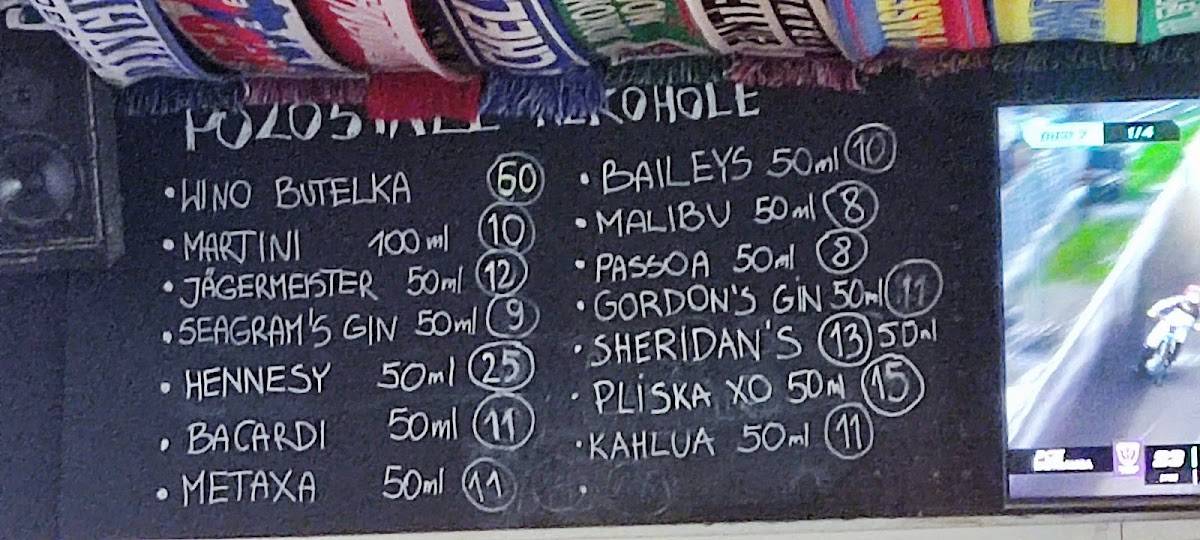 POZOSTAŁE ALKOHOLE
• WINO BUTELKA 60
• MARTINI 100ml 10
• JÄGERMEISTER 50ml 12
• SEAGRAM'S GIN 50ml 9
• HENNESY 50ml 25
• BACARDI 50ml 11
• METAXA 50ml 11
• BAILEYS 50ml 10
• MALIBU 50ml 8
• PASSOA 50ml 8
• GORDON'S GIN 50ml 11
• SHERIDAN'S 13 50ml
• PLISKA XO 50ml 15
• KAHLUA 50ml 11
•
1/4